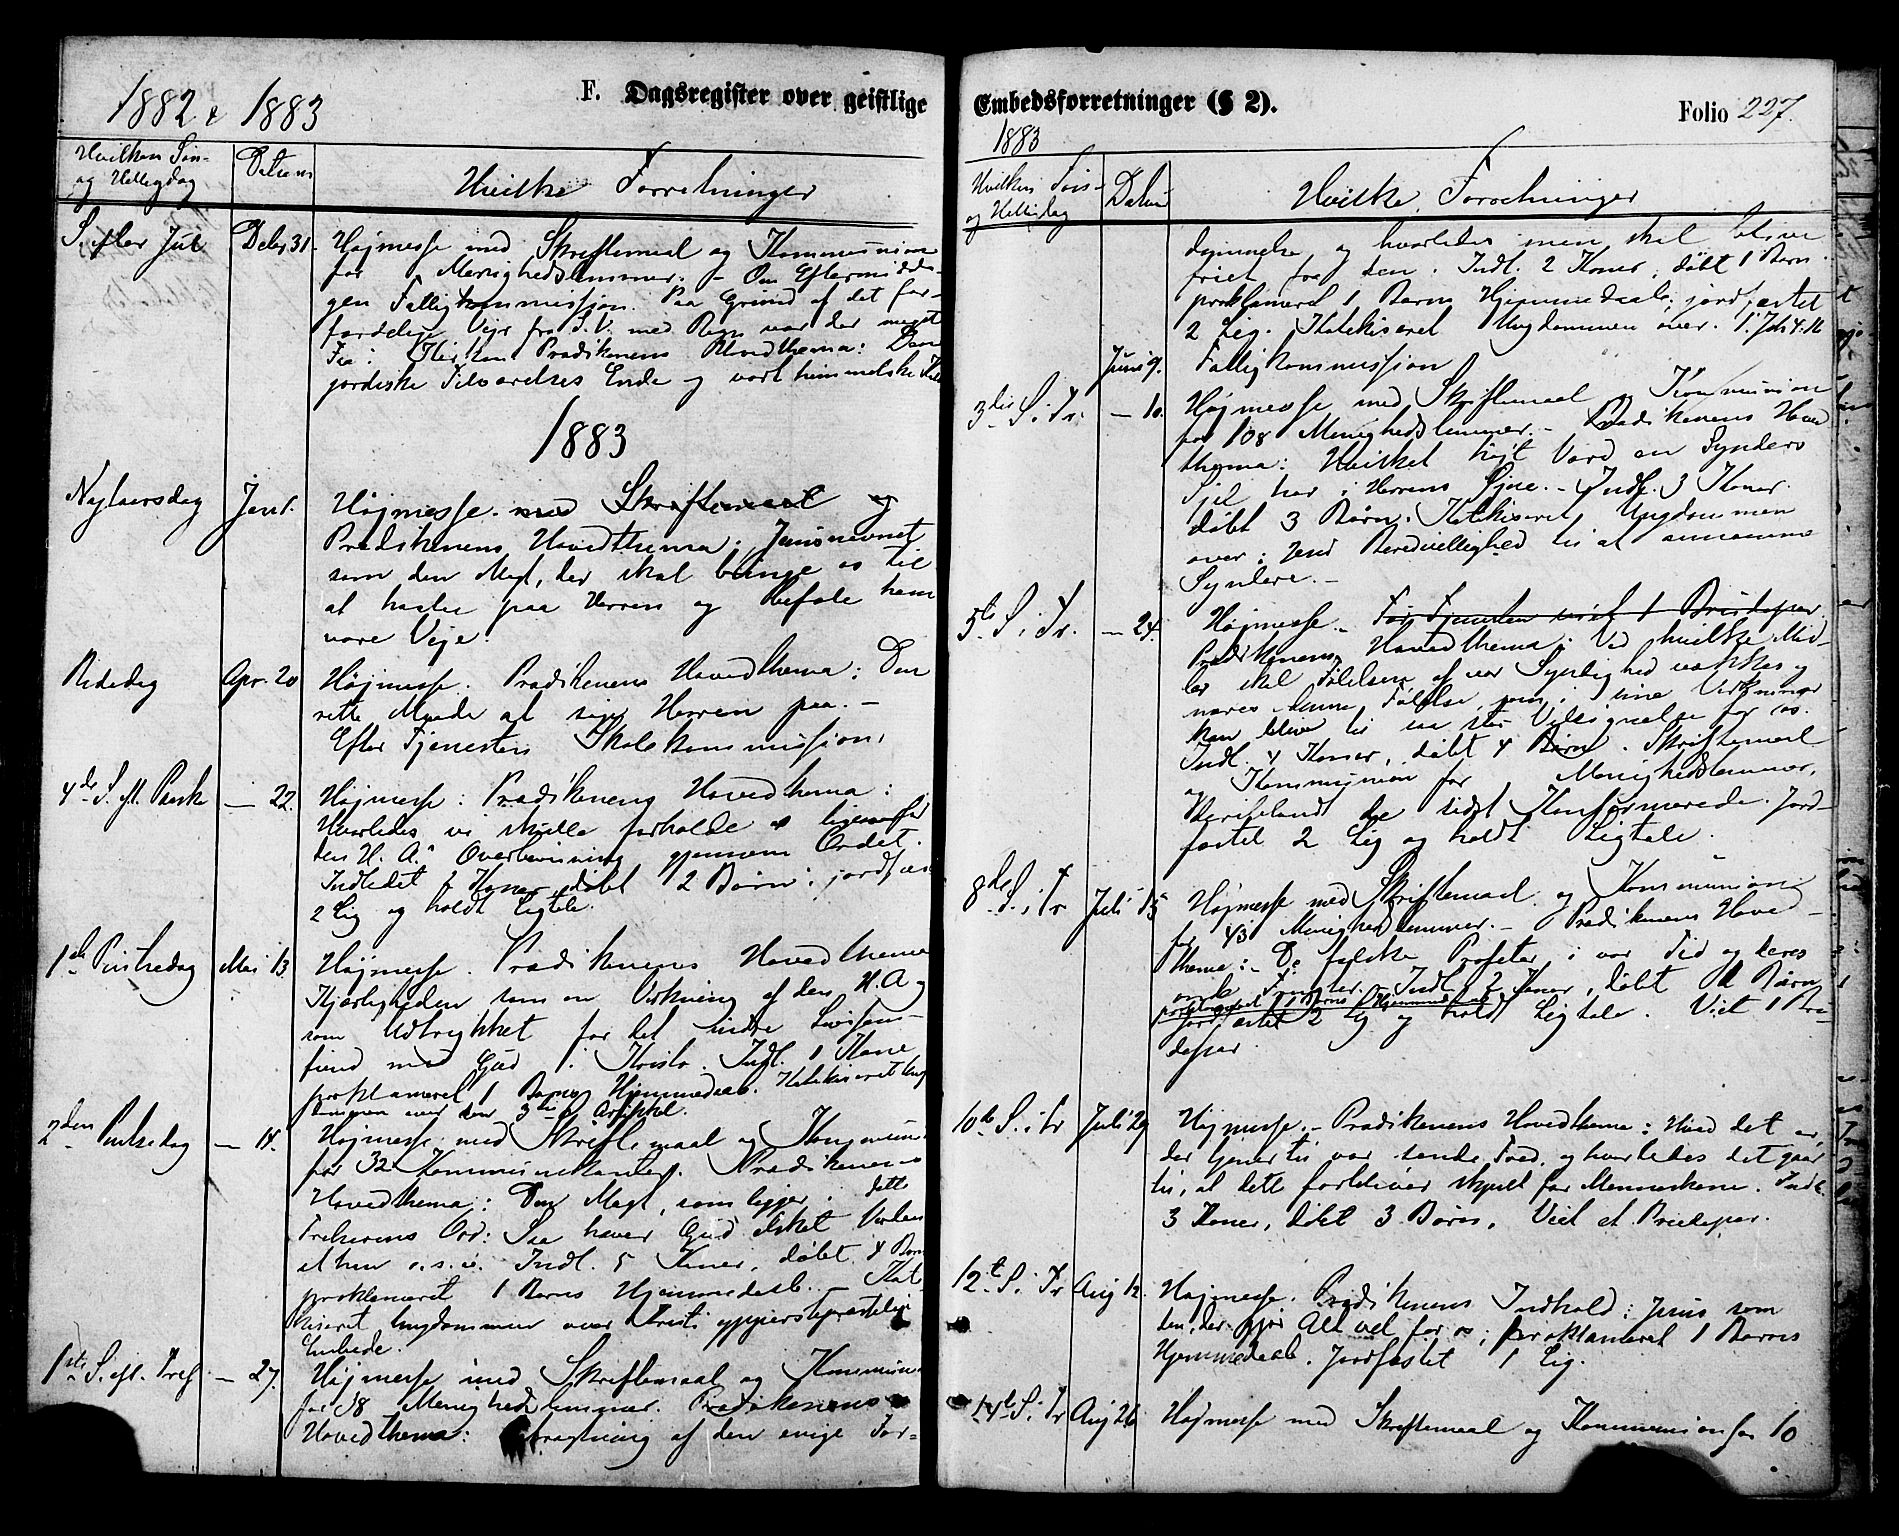 1882 & 1883
F. Dagsregister over geistlige
Hvilken Søn-
og Helligdag
Datum
Hvilke Forretninger
S. efter Jul
Decbr 31.
Højmesse med Skriftemaal og Kommunion
for Menighedslemmer. - Om Eftermidda-
gen Fattigkommission. Paa Grund af det for-
færdelige Vejr fra S.V. med Regn var der meget
Faa i Kirken. Prædikenens Hovedthema: Den
jordiske Tilværelses Ende og vort himmelske
1883
Nytaarsdag
Jan 1.
Højmesse. med Skriftemaal og
Prædikenens Hovedthema: Jesusnavnet
som den Magt, der skal bringe os til
at haabe paa Herren og befale ham
vore Veje.
Bededag
Apr. 20
Højmesse. Prædikenens Hovedthema: Den
rette Maade at søge Herren paa. -
Efter Tjenesten Skolekommission.
4de S. eft. Paaske
- 22.
Højmesse: Prædikenens Hovedthema:
Hvorledes vi skulle forholde os ligeoverfor
den H. A.s Overbevisning gjennem Ordet.
Indledet Koner, døbt 2 Børn; jordfæst
2 Lig og holdt Ligtale.
1ste Pintsedag
Mai 13.
Højmesse. Prædikenens Hovedthema
Kjærligheden som en Virkning af den H. A og
som Udtrykket for det indre Livssam-
fund med Gud i Kristo. Indl. 1 Kone
proklameret 1 Barns Hjemmedaab. Katekiseret Ung
dommen over den 3die Artikkel.
2den Pintsedag
- 14.
Højmesse med Skriftemaal og Kommun.
for 32 Kommunikanter. Prædikenens
Hovedthema: Den Magt, som ligger i dette
Frelserens Ord: Saa haver Gud elsket Verden
at han o.s.v. Indl. 5 Koner, døbt 4 Børn
proklameret 1 Barns Hjemmedaab. - Kate
kiseret Ungdommen over Kristi ypperstepræstelige
Embede.
1ste S. eft. Tref.
- 27.
Højmesse med Skriftemaal og Kommun
for 38 Menighedslemmer. Prædikenens
Hovedthema: Betragtning af den evige For-
Embedsforretninger (§ 2).
Folio 227.
1883
Hvilken Søn-
og Helligdag
Datum
Hvilke Forretninger
dømmelse og hvorledes man skal blive
friet fra den. Indl. 2 Koner, døbt 1 Barn.
proklameret 1 Barns Hjemmedaab; jordfæstet
2 Lig. Katekiseret Ungdommen over. 1. Joh 4.16
Juni 9.
Fattigkommission
3die S. i. Tr.
- 10.
Højmesse med Skriftemaal og Kommunion
for 108 Menighedslemmer. - Prædikenens Hoved
thema: Hvilket højt Værd en Synders
Sjel har i Herrens Øjne. - Indl. 3 Koner.
døbt 3 Børn. Katekiseret Ungdommen
over: Jesu Beredvillighed til at annamme
Syndere. -
5te S. i Tr.
- 24.
Højmesse - Før Tjenesten viet 1 Brudepar
Prædikenens Hovedthema: Ved hvilke Mid-
ler skal Følelsen af vor Syndighed vækkes og
næres denne Følelse, som i sine Virkninger
kan blive til saa stor Velsignelse for os.
Indl. 4 Koner, døbt 4 Børn. Skriftemaal
og Kommunion for Menighedslemmer,
deriblandt de sidst Konfirmerede. Jord-
fæstet 2 Lig og holdt Ligtale.
8de S. i Tr
Juli 15
Højmesse med Skriftemaal og Kommunion
for 43 Menighedslemmer. - Prædikenens Hoved-
thema: - De falske Profeter i vor Tid og deres
onde Frugter. Indl. 2 Koner, døbt 2 Børn
proklameret 1 Barns Hjemmedaab
Jordfæstet 2 Lig og holdt Ligtale. Viet 1 Bru-
depar.
10de S. i Tr
Juli 29
Højmesse. - Prædikenens Hovedthema: Hvad det er,
der tjener til vor sande Fred, og hvorledes det gaar
til, at dette forbliver skjult for Menneskene. Indl.
3 Koner, døbt 3 Børn. Viet et Brudepar.
12te S. i. Tr
Aug 12.
Højmesse. Prædikenens Indhold: Jesus som
den, der gjør Alt vel for os; proklameret 1 Barns
Hjemmedaab. Jordfæstet 1 Lig.
14de S. i Tr
Aug 26
Højmesse med Skriftemaal og Kommunion for 10